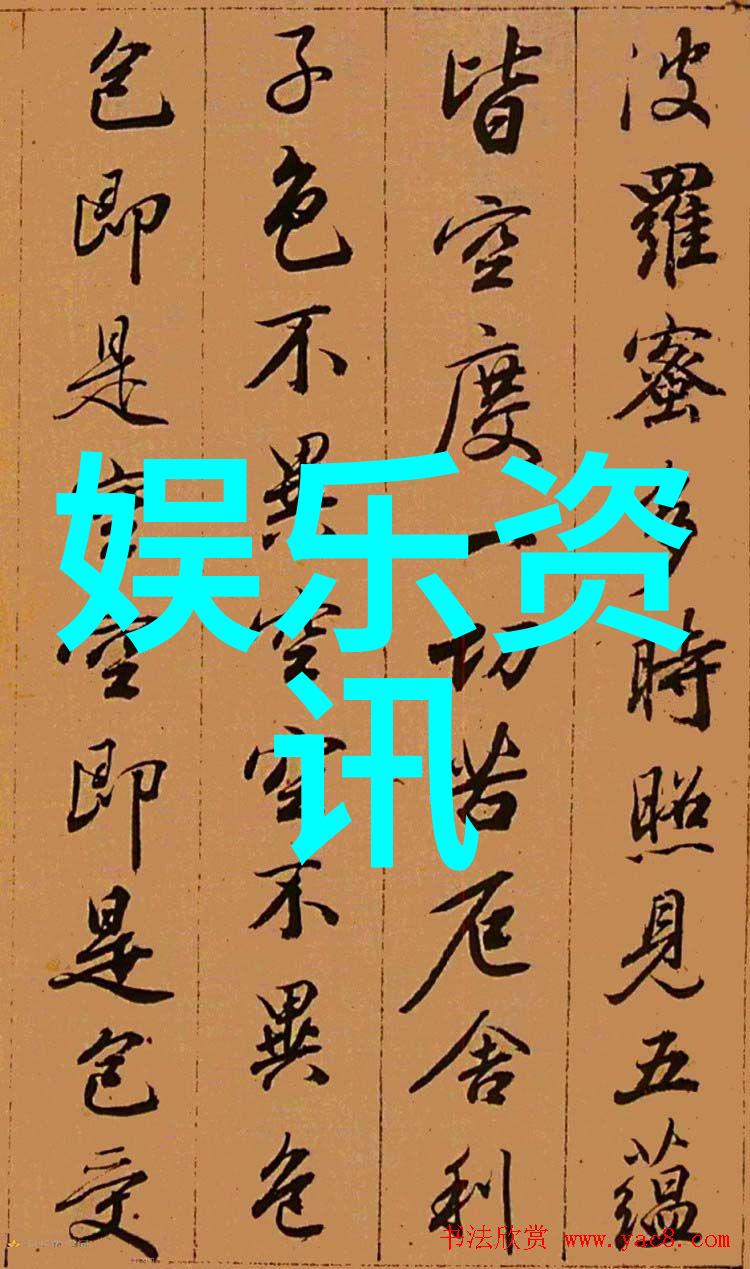 波羅蜜多時照見五蘊
皆空度一切苦厄舍利
子色不異空空不異色
色即是空空即是色受
娱乐资讯
书法欣赏 www.yac8.com